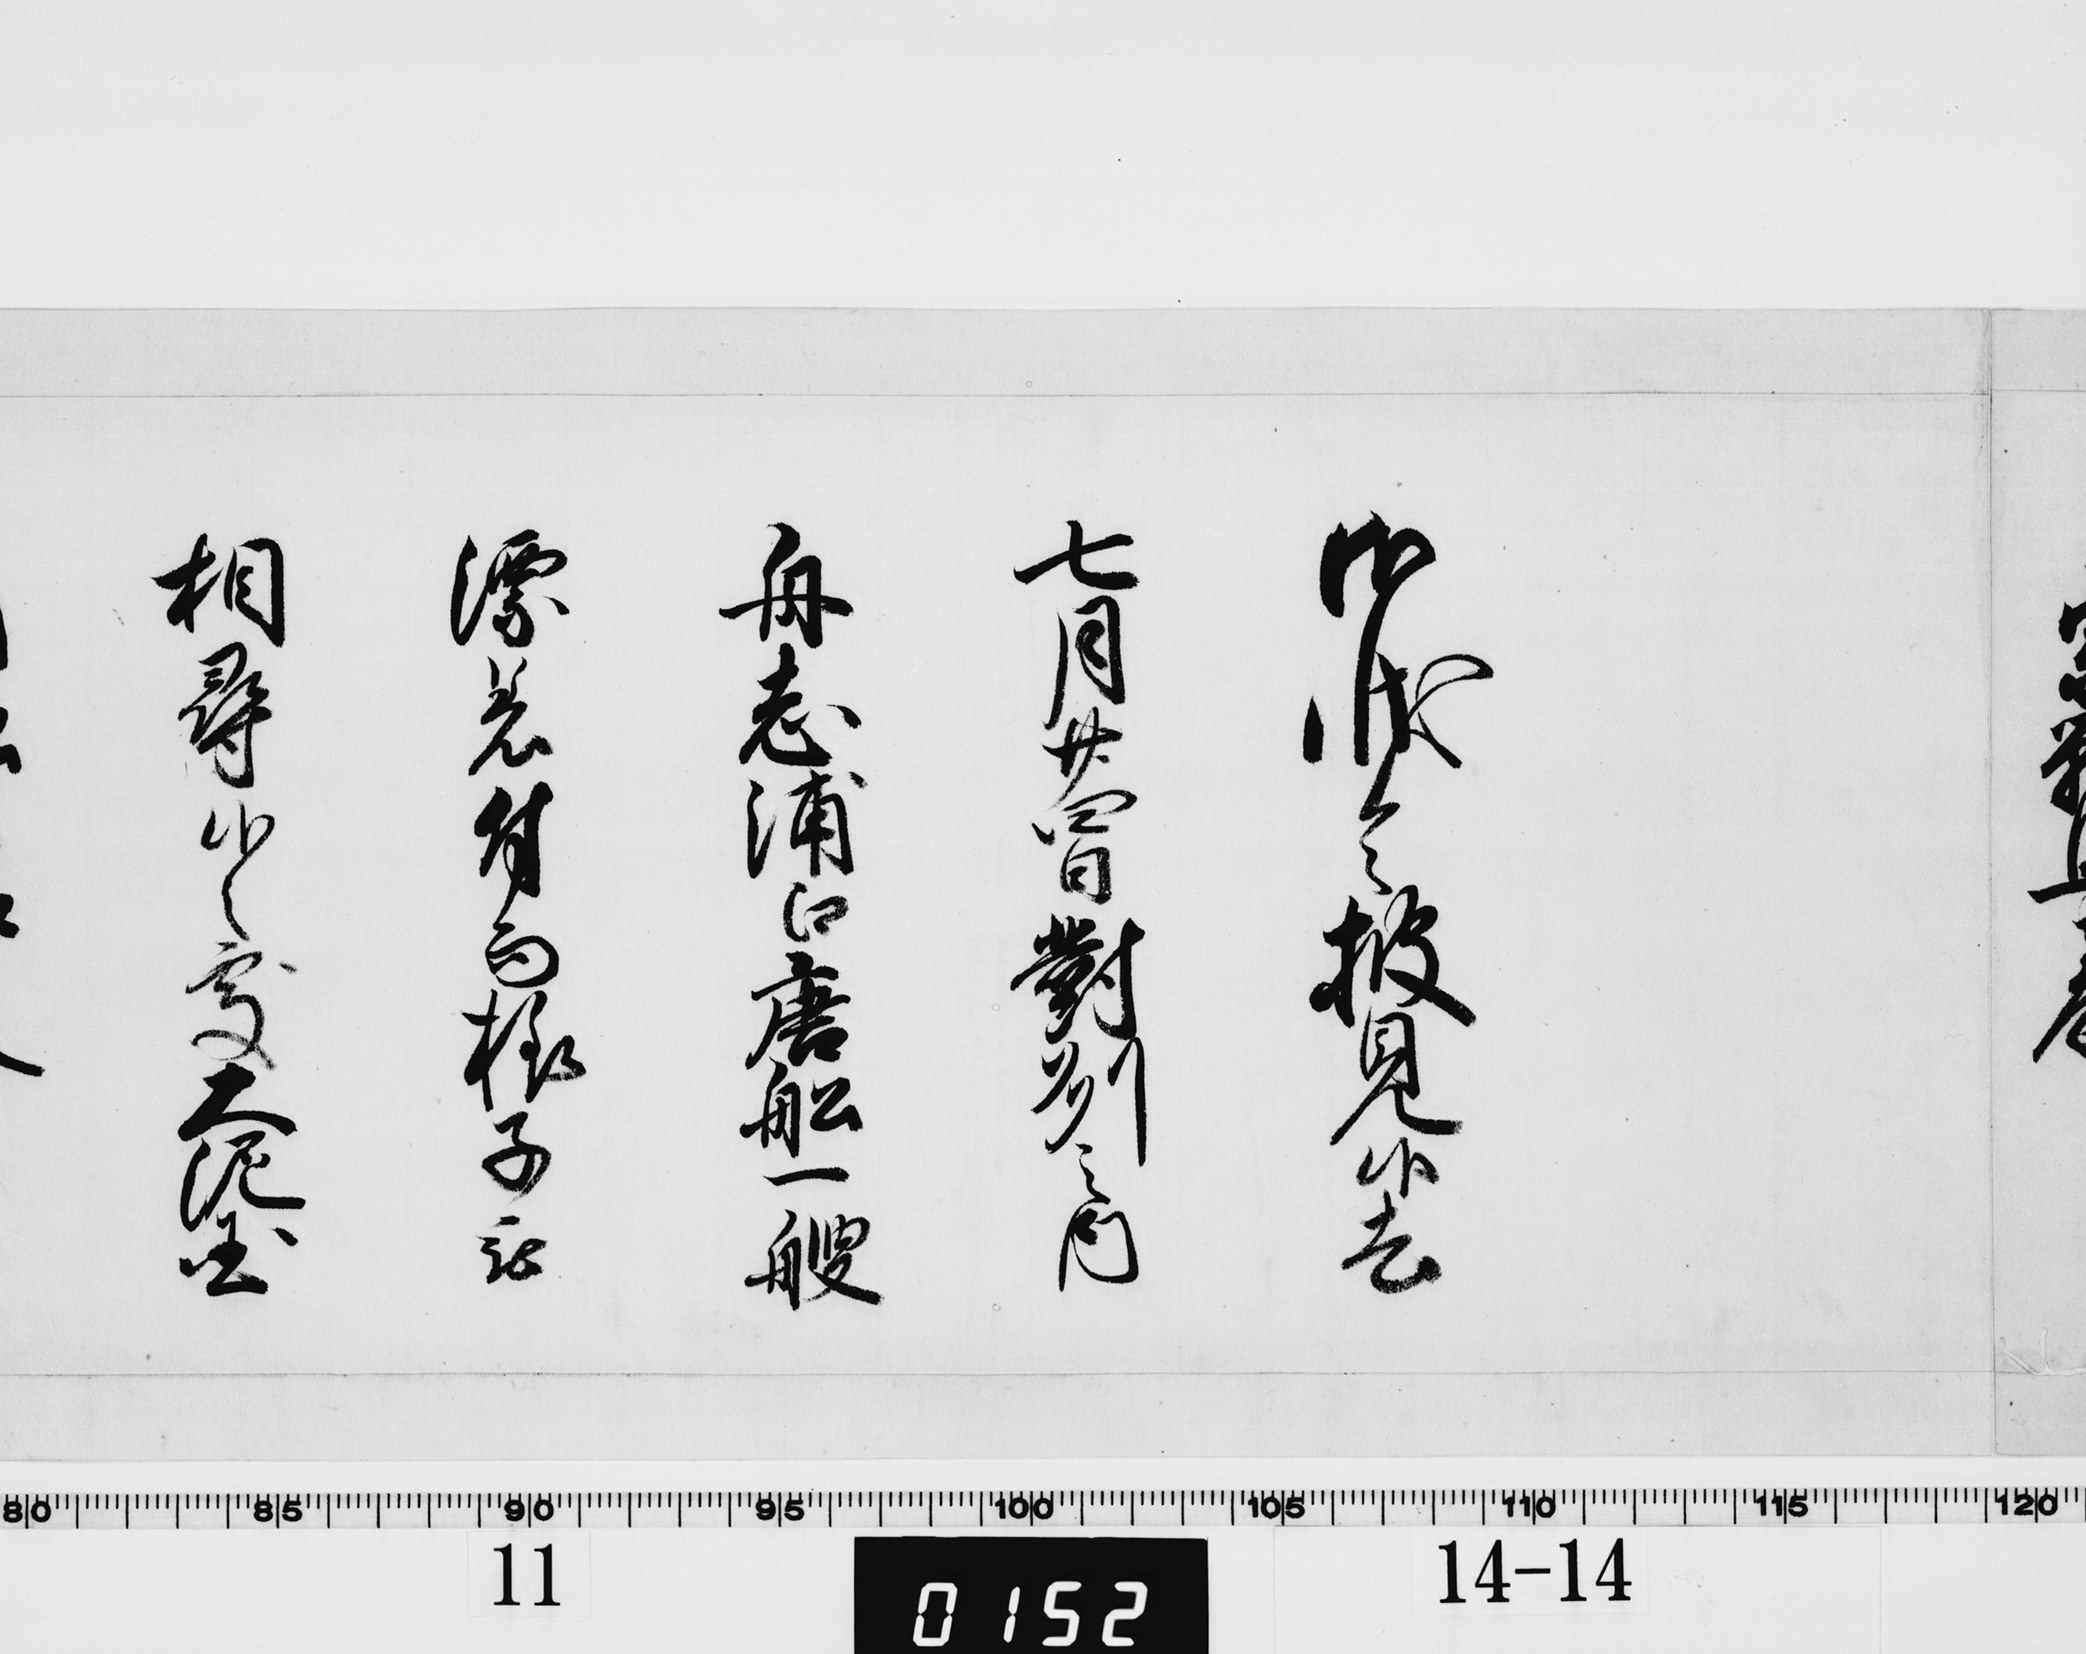 御状令披見候去
七月廿四日對州之内
舟志浦江唐船一艘
漂着付而様子
相尋候之處大泥国
80 85 90 95 100 105 110 115 120
11
0152
14-14